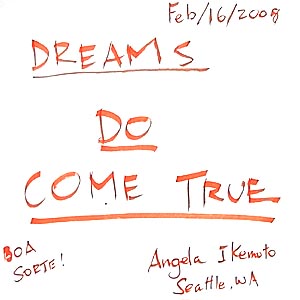 Feb/16/2008
DREAMS
DO
COME TRUE
BOA
SORTE!
Angela Ikemoto
Seattle, WA